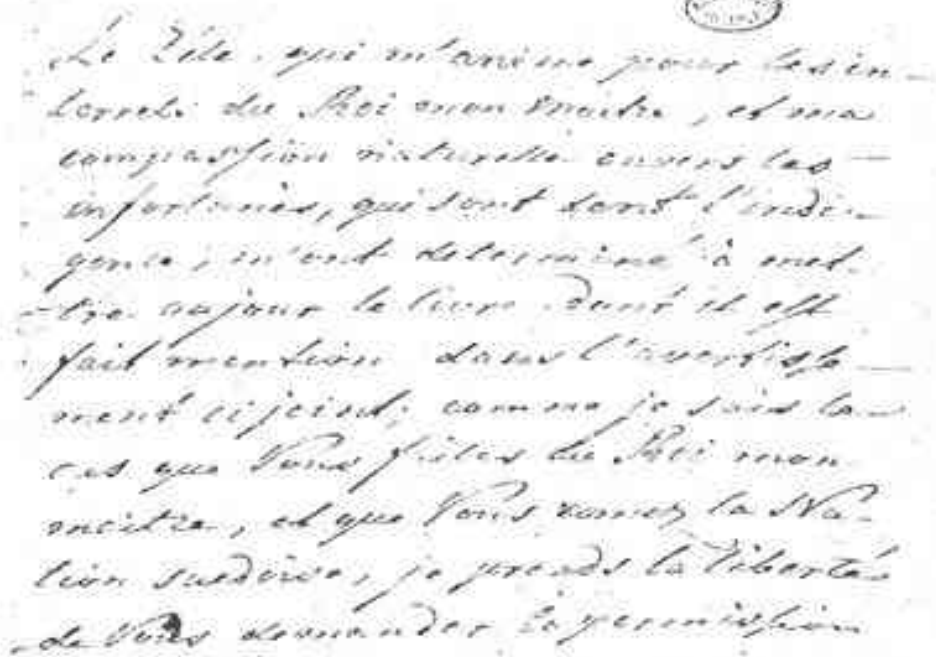 Le Zéle qui m'anime pour les in-
terrets du Roi mon Maitre, et ma
compassion naturelle envers les
infortunés, qui sont dans l'indi-
gence, m'ont determiné à met-
-tre au jour le livre dont il est
fait mention dans l'avertisse-
ment ci joint; comme je sais
que Vous du Roi mon
maitre, et que Vous aimez la Na-
tion suedoise, je prends la liberté
de Vous demander la permission